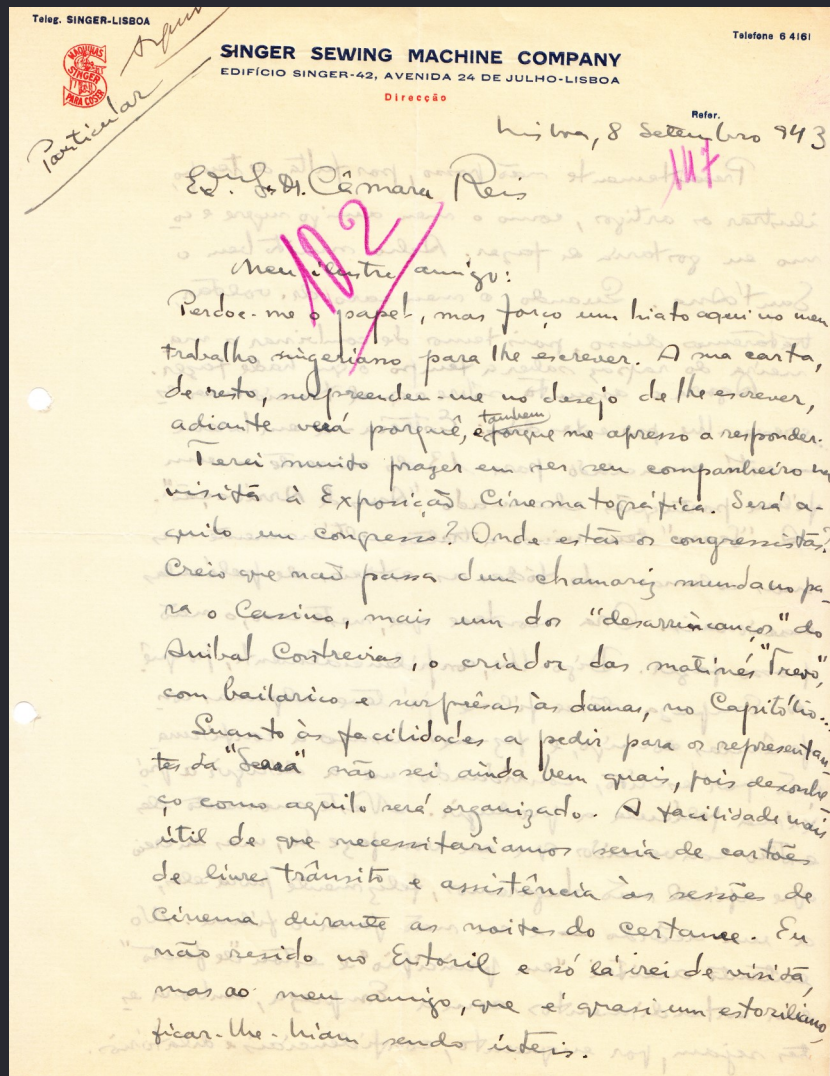 Teleg. SINGER-LISBOA
Telefone 6 4161
MAQUINAS
SINGER
PARA COSER
Particular
SINGER SEWING MACHINE COMPANY
EDIFÍCIO SINGER-42, AVENIDA 24 DE JULHO-LISBOA
Direcção
Refer.
Lisboa, 8 Setembro 943
147
Ex.mo Sr. Dr. Câmara Reis
102
Meu ilustre amigo:
Perdoe-me o papel, mas forço um hiato aqui no meu
trabalho singeriano para lhe escrever. A sua carta,
de resto, surpreendeu-me no desejo de lhe escrever,
adiante verá porquê, e também porque me apresso a responder.
Terei muito prazer em ser seu companheiro na
visita à Exposição Cinematográfica. Será a-
quilo um congresso? Onde estão os congressistas?
Creio que não passa dum chamariz mundano pa-
ra o Casino, mais um dos "desarrincanços" do
Anibal Contreiras, o criador das matinés "Trevo",
com bailarico e surprêsas às damas, no Capitólio...
Quanto às facilidades a pedir para os representan-
tes da "Seara" não sei ainda bem quais, pois desconhe-
ço como aquilo será organizado. A facilidade mais
útil de que necessitaríamos seria de cartões
de livre trânsito e assistência às sessões de
cinema durante as noites do certame. Eu
não resido no Estoril e só lá irei de visita,
mas ao meu amigo, que é quasi um estoriliano,
ficar-lhe-hiam sendo úteis.